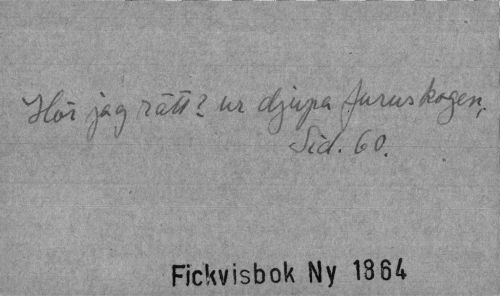 Hör jag rätt? ur djupa furuskogen,
Sid. 60.
Fickvisbok Ny 1864